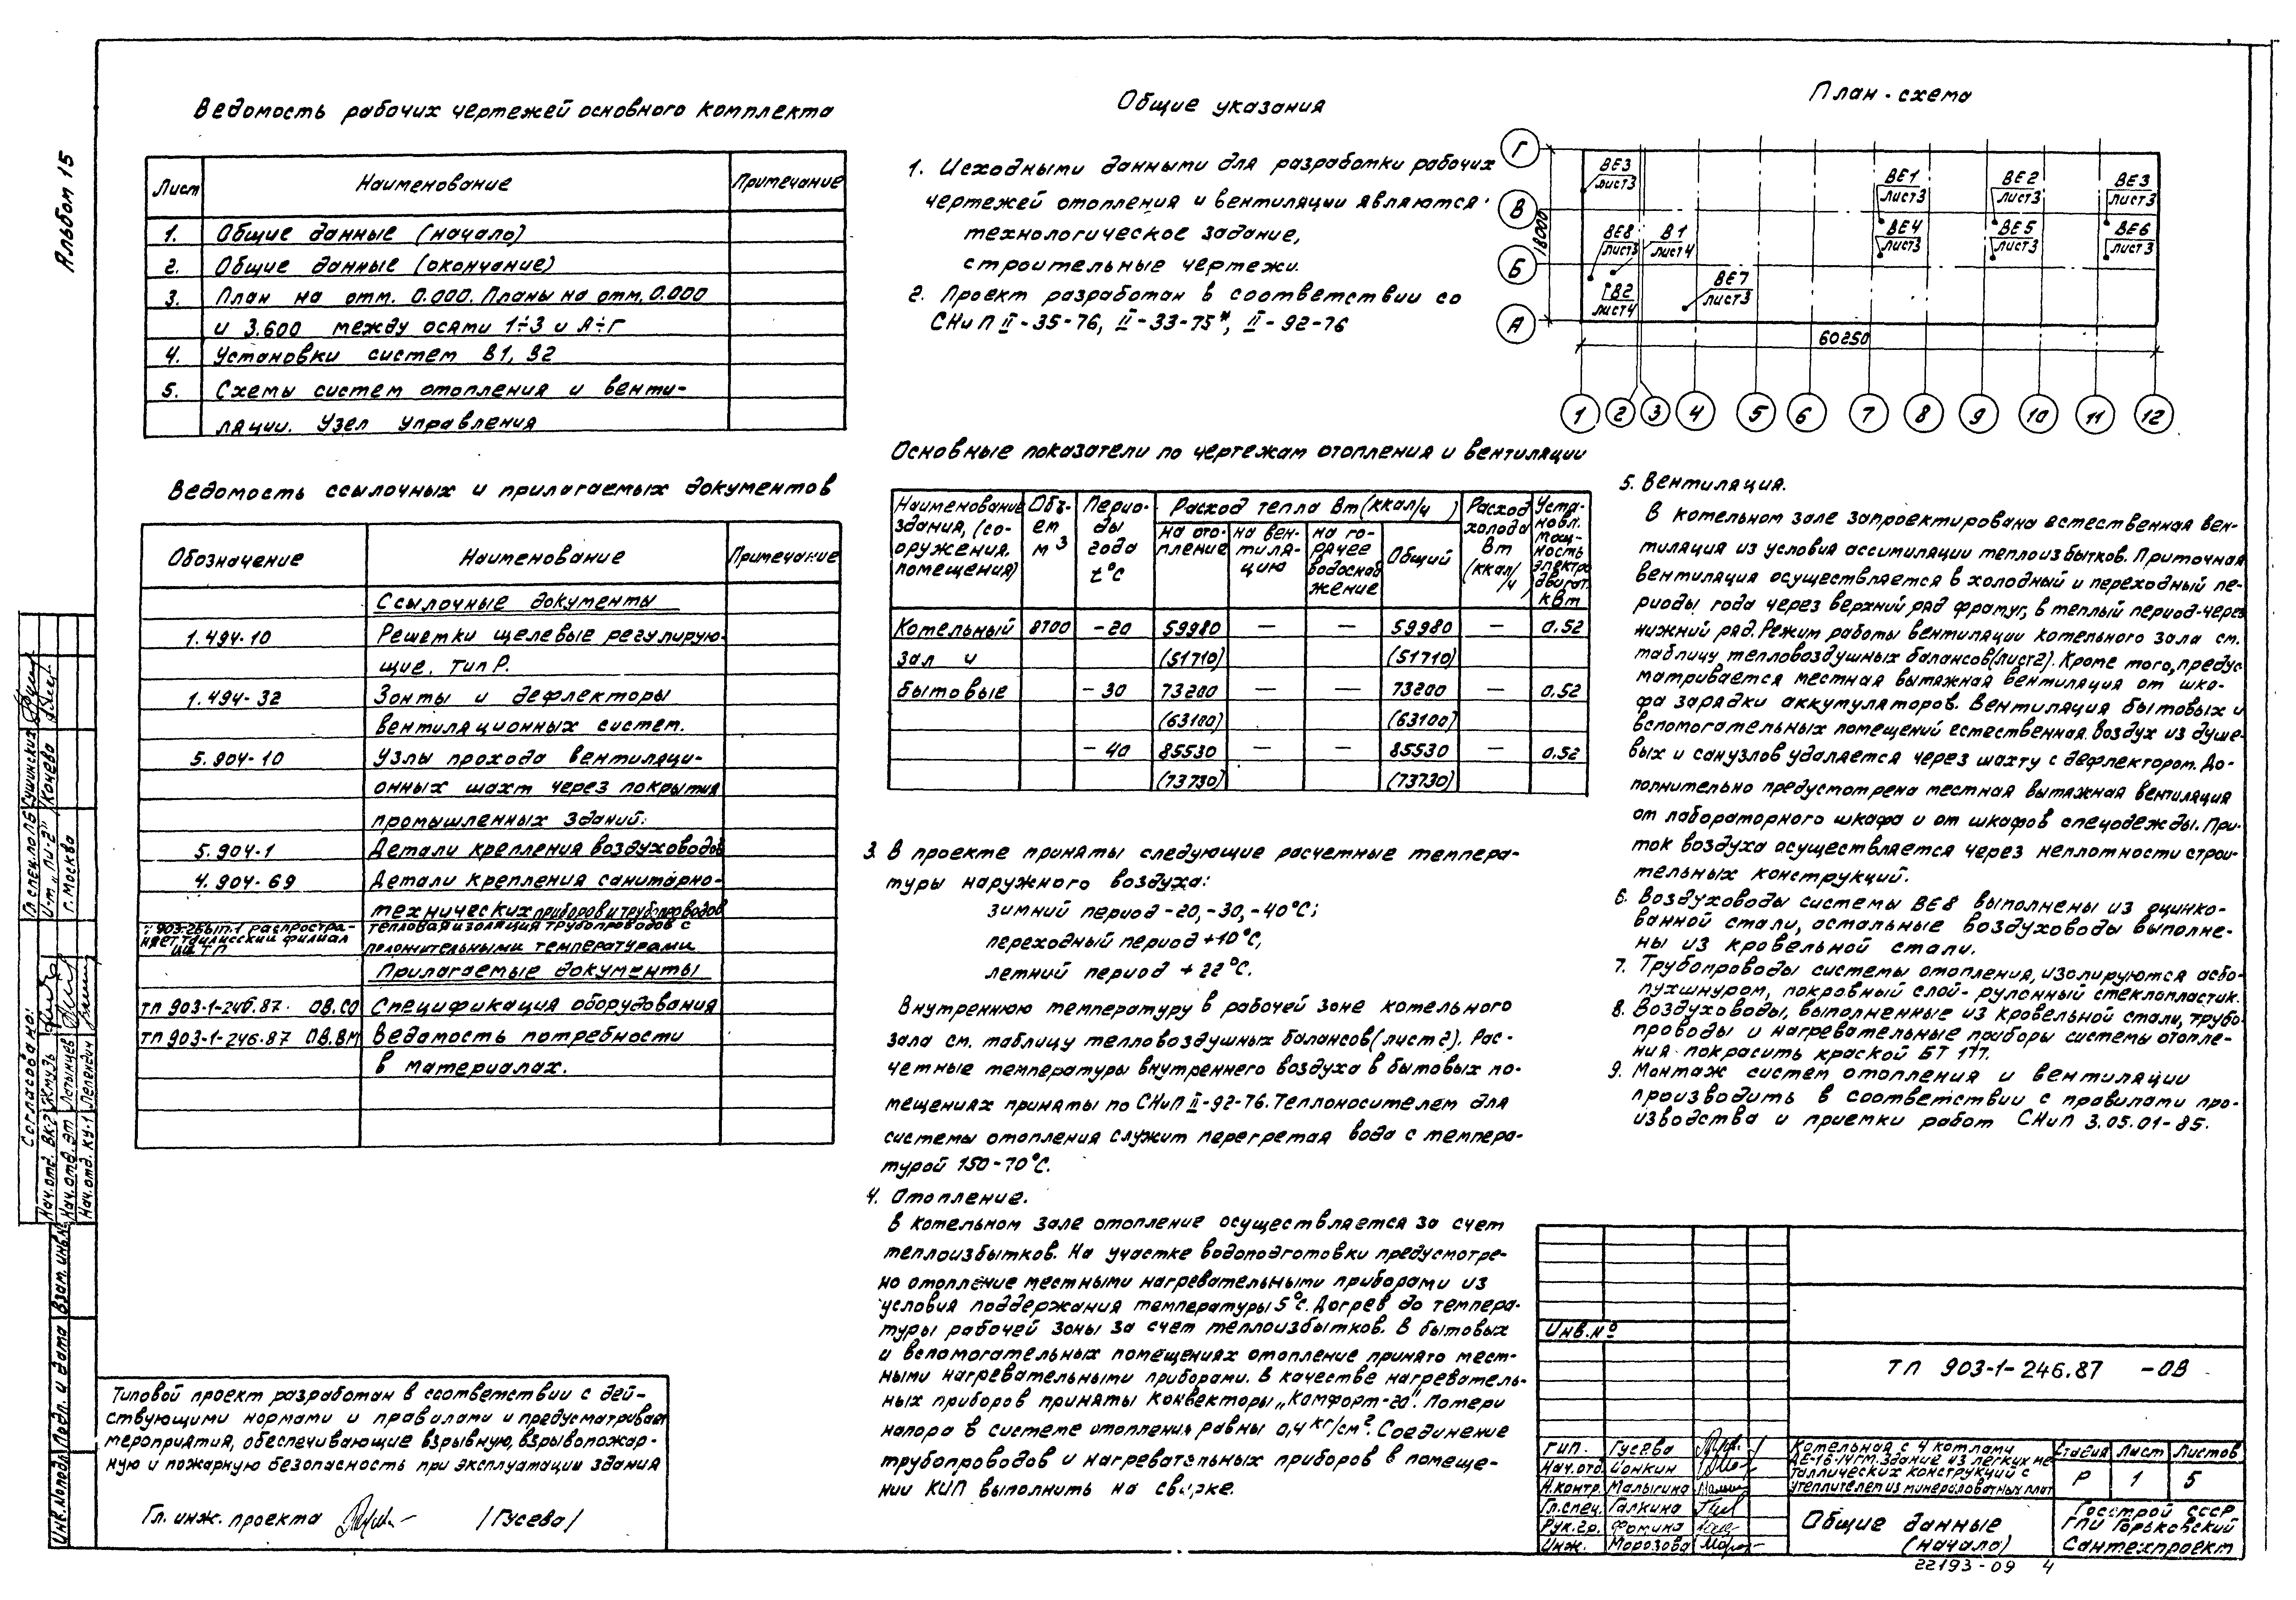 Альбом 15
Ведомость рабочих чертежей основного комплекта
Лист Наименование Примечание
1. Общие данные (начало)
2. Общие данные (окончание)
3. План на отм. 0.000. Планы на отм. 0.000
и 3.600 между осями 1÷3 и А÷Г
4. Установки систем В1, В2
5. Схемы систем отопления и венти-
ляции. Узел управления
Ведомость ссылочных и прилагаемых документов
Обозначение Наименование Примечание
Ссылочные документы
1.494-10 Решетки щелевые регулирую-
щие. Тип Р.
1.494-32 Зонты и дефлекторы
вентиляционных систем.
5.904-10 Узлы прохода вентиляци-
онных шахт через покрытия
промышленных зданий.
5.904-1 Детали крепления воздуховодов
4.904-69 Детали крепления санитарно-
технических приборов и трубопроводов
распростра- тепловая изоляция трубопроводов с
няет Тбилисский филиал
положительными температурами
Прилагаемые документы
ТП 903-1-246.87 ОВ.СО Спецификация оборудования
ТП 903-1-246.87 ОВ.ВМ Ведомость потребности
в материалах.
Типовой проект разработан в соответствии с дей-
ствующими нормами и правилами и предусматривает
мероприятия, обеспечивающие взрывную, взрывопожар-
ную и пожарную безопасность при эксплуатации здания
Гл. инж. проекта /Гусева/
Общие указания
1. Исходными данными для разработки рабочих
чертежей отопления и вентиляции являются:
технологическое задание,
строительные чертежи.
2. Проект разработан в соответствии со
СНиП II-35-76, II-33-75*, II-92-76
План-схема
Г
В
Б
А
18000
60250
ВЕ3 лист3
ВЕ1 лист3
ВЕ2 лист3
ВЕ3 лист3
ВЕ8 лист3
В1 лист4
ВЕ4 лист3
ВЕ5 лист3
ВЕ6 лист3
В2 лист4
ВЕ7 лист3
1 2 3 4 5 6 7 8 9 10 11 12
Основные показатели по чертежам отопления и вентиляции
Наименование здания, (сооружения, помещения) Объем м3 Периоды года t°С Расход тепла Вт (ккал/ч) Расход холода Вт (ккал/ч) Установл. мощность электродвигат. кВт
на отопление на вентиляцию на горячее водоснабжение Общий
Котельный 8700 -20 59980 — — 59980 — 0.52
зал и (51710) (51710)
бытовые -30 73200 — — 73200 — 0.52
(63100) (63100)
-40 85530 — — 85530 — 0.52
(73730) (73730)
3. В проекте приняты следующие расчетные темпера-
туры наружного воздуха:
зимний период -20,-30,-40°С;
переходный период +10°С,
летний период +22°С.
Внутреннюю температуру в рабочей зоне котельного
зала см. таблицу тепловоздушных балансов (лист 2). Рас-
четные температуры внутреннего воздуха в бытовых по-
мещениях приняты по СНиП II-92-76. Теплоносителем для
системы отопления служит перегретая вода с темпера-
турой 150-70°С.
4. Отопление.
В котельном зале отопление осуществляется за счет
теплоизбытков. На участке водоподготовки предусмотре-
но отопление местными нагревательными приборами из
условия поддержания температуры 5°С. Догрев до темпера-
туры рабочей зоны за счет теплоизбытков. В бытовых
и вспомогательных помещениях отопление принято мест-
ными нагревательными приборами. В качестве нагреватель-
ных приборов приняты конвекторы „Комфорт-20". Потери
напора в системе отопления равны 0,4 кг/см2. Соединение
трубопроводов и нагревательных приборов в помеще-
нии КИП выполнить на сварке.
5. Вентиляция.
В котельном зале запроектирована естественная вен-
тиляция из условия ассимиляции теплоизбытков. Приточная
вентиляция осуществляется в холодный и переходный пе-
риоды года через верхний ряд фрамуг, в теплый период-через
нижний ряд. Режим работы вентиляции котельного зала см.
таблицу тепловоздушных балансов (лист 2). Кроме того, предус-
матривается местная вытяжная вентиляция от шка-
фа зарядки аккумуляторов. Вентиляция бытовых и
вспомогательных помещений естественная. Воздух из душе-
вых и санузлов удаляется через шахту с дефлектором. До-
полнительно предусмотрена местная вытяжная вентиляция
от лабораторного шкафа и от шкафов спецодежды. При-
ток воздуха осуществляется через неплотности строи-
тельных конструкций.
6. Воздуховоды системы ВЕ8 выполнены из оцинко-
ванной стали, остальные воздуховоды выполне-
ны из кровельной стали.
7. Трубопроводы системы отопления, изолируются асбо-
пухшнуром, покровный слой-рулонный стеклопластик.
8. Воздуховоды, выполненные из кровельной стали, трубо-
проводы и нагревательные приборы системы отопле-
ния покрасить краской БТ 177.
9. Монтаж систем отопления и вентиляции
производить в соответствии с правилами про-
изводства и приемки работ СНиП 3.05.01-85.
Инв.№
ТП 903-1-246.87 -ОВ
ГИП. Гусева
Нач.отд. Йонкин
Н.контр. Малыгина
Гл.спец. Галкина
Рук.гр. Фомина
Инж. Морозова
Котельная с 4 котлами
ДЕ-16-14ГМ. Здание из легких ме-
таллических конструкций с
утеплителем из минераловатных плит
Стадия Лист Листов
Р 1 5
Общие данные
(начало)
Госстрой СССР
ГПИ Горьковский
Сантехпроект
22193-09 4
Согласовано:
Гл.спец.по ЛБ Сушинских
И-т „ПИ-2" Конева
г. Москва
Нач.отд. ВК-2
Нач.отд. ЭТ Устынцев
Нач.отд. КУ-1 Лепендин
Инв.№подл. Подп. и дата Взам.инв.№